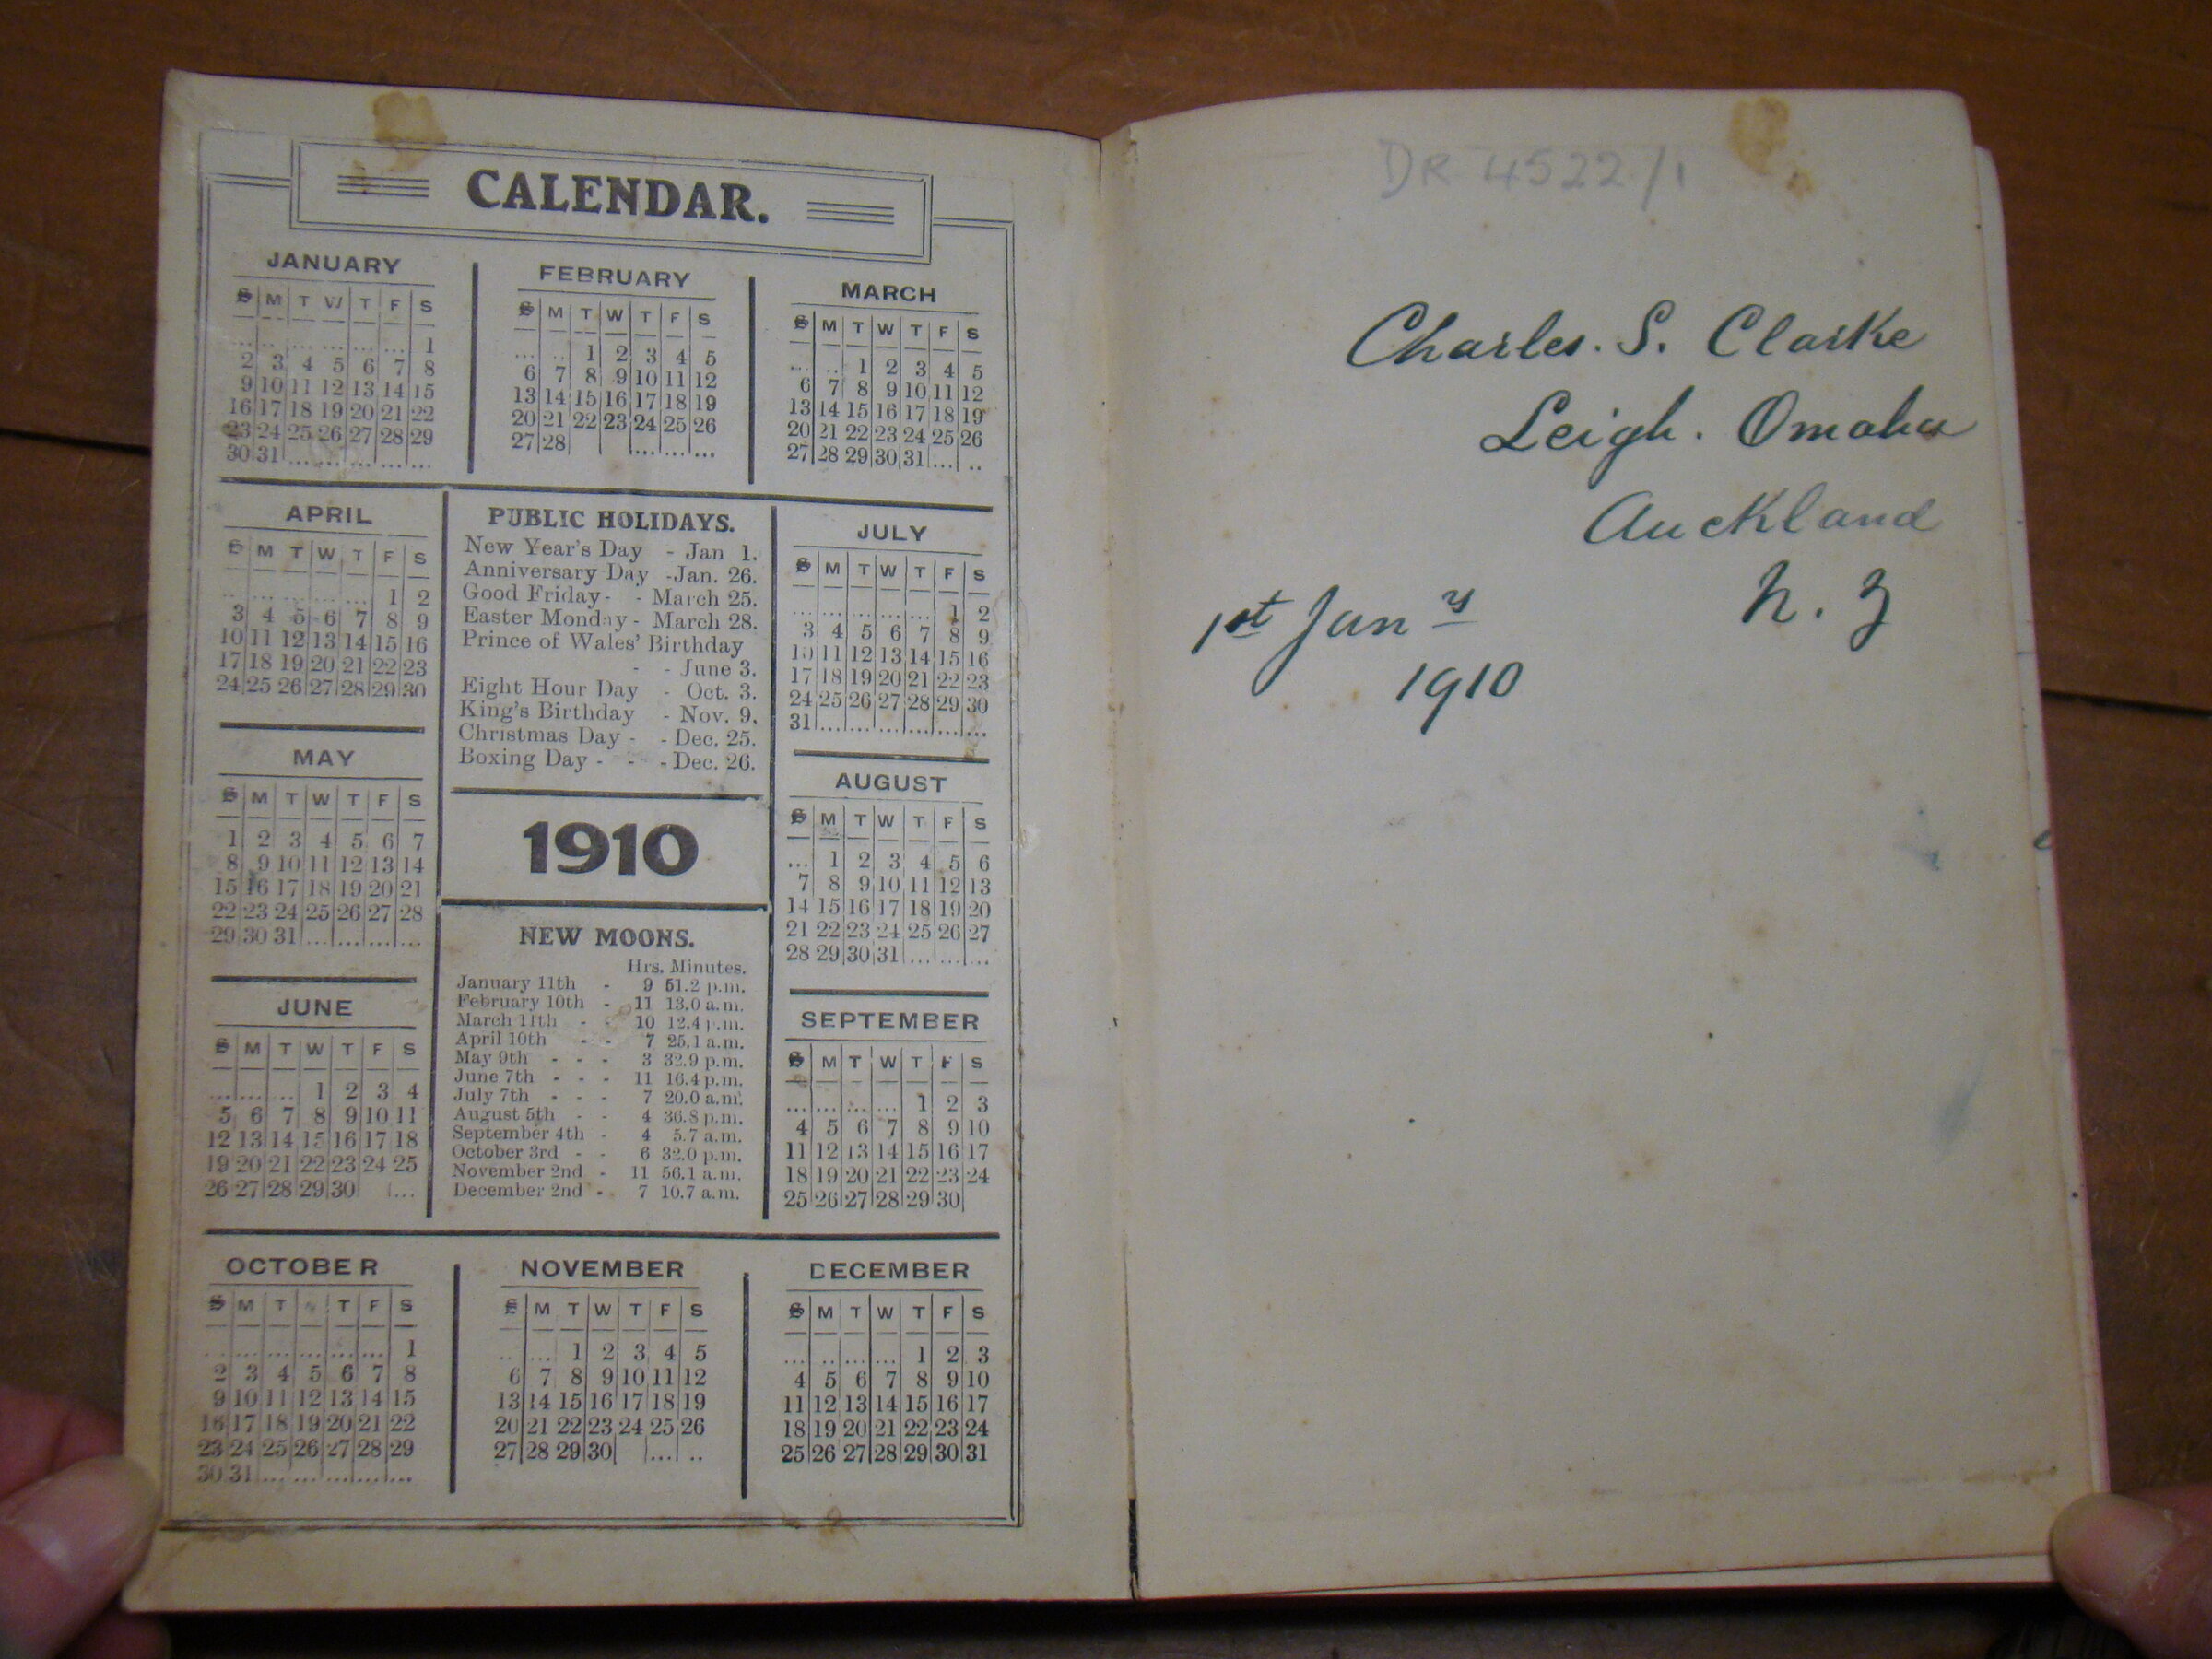 CALENDAR.
JANUARY
S M T W T F S
... .. ... ... ... ... 1
2 3 4 5 6 7 8
9 10 11 12 13 14 15
16 17 18 19 20 21 22
23 24 25 26 27 28 29
30 31 ... ... ... ... ...
FEBRUARY
S M T W T F S
... .. 1 2 3 4 5
6 7 8 9 10 11 12
13 14 15 16 17 18 19
20 21 22 23 24 25 26
27 28 ... ... ...
MARCH
S M T W T F S
... .. 1 2 3 4 5
6 7 8 9 10 11 12
13 14 15 16 17 18 19
20 21 22 23 24 25 26
27 28 29 30 31 ... ..
APRIL
S M T W T F S
... ... ... ... ... 1 2
3 4 5 6 7 8 9
10 11 12 13 14 15 16
17 18 19 20 21 22 23
24 25 26 27 28 29 30
MAY
S M T W T F S
1 2 3 4 5 6 7
8 9 10 11 12 13 14
15 16 17 18 19 20 21
22 23 24 25 26 27 28
29 30 31 ... ... ... ...
JUNE
S M T W T F S
... ... ... 1 2 3 4
5 6 7 8 9 10 11
12 13 14 15 16 17 18
19 20 21 22 23 24 25
26 27 28 29 30 ...
PUBLIC HOLIDAYS.
New Year's Day - Jan 1.
Anniversary Day -Jan. 26.
Good Friday- - March 25.
Easter Monday - March 28.
Prince of Wales' Birthday
- - June 3.
Eight Hour Day - Oct. 3.
King's Birthday - Nov. 9.
Christmas Day - - Dec. 25.
Boxing Day - - - Dec. 26.
1910
NEW MOONS.
Hrs. Minutes.
January 11th - 9 51.2 p.m.
February 10th - 11 13.0 a.m.
March 11th - - 10 12.4 p.m.
April 10th - - 7 25.1 a.m.
May 9th - - - 3 32.9 p.m.
June 7th - - - 11 16.4 p.m.
July 7th - - - 7 20.0 a.m.
August 5th - - 4 36.8 p.m.
September 4th - 4 5.7 a.m.
October 3rd - - 6 32.0 p.m.
November 2nd - 11 56.1 a.m.
December 2nd - 7 10.7 a.m.
JULY
S M T W T F S
... ... ... ... ... 1 2
3 4 5 6 7 8 9
10 11 12 13 14 15 16
17 18 19 20 21 22 23
24 25 26 27 28 29 30
31 ... ... ... ... ... ...
AUGUST
S M T W T F S
... 1 2 3 4 5 6
7 8 9 10 11 12 13
14 15 16 17 18 19 20
21 22 23 24 25 26 27
28 29 30 31 ... ... ...
SEPTEMBER
S M T W T F S
... ... ... ... 1 2 3
4 5 6 7 8 9 10
11 12 13 14 15 16 17
18 19 20 21 22 23 24
25 26 27 28 29 30
OCTOBER
S M T W T F S
... ... ... ... ... ... 1
2 3 4 5 6 7 8
9 10 11 12 13 14 15
16 17 18 19 20 21 22
23 24 25 26 27 28 29
30 31 ... ... ... ... ...
NOVEMBER
S M T W T F S
.. ... 1 2 3 4 5
6 7 8 9 10 11 12
13 14 15 16 17 18 19
20 21 22 23 24 25 26
27 28 29 30 ... ..
DECEMBER
S M T W T F S
... .. ... ... 1 2 3
4 5 6 7 8 9 10
11 12 13 14 15 16 17
18 19 20 21 22 23 24
25 26 27 28 29 30 31
DR 4522/1
Charles. S. Clarke
Leigh. Omaha
Auckland
N. Z
1st Jany
1910